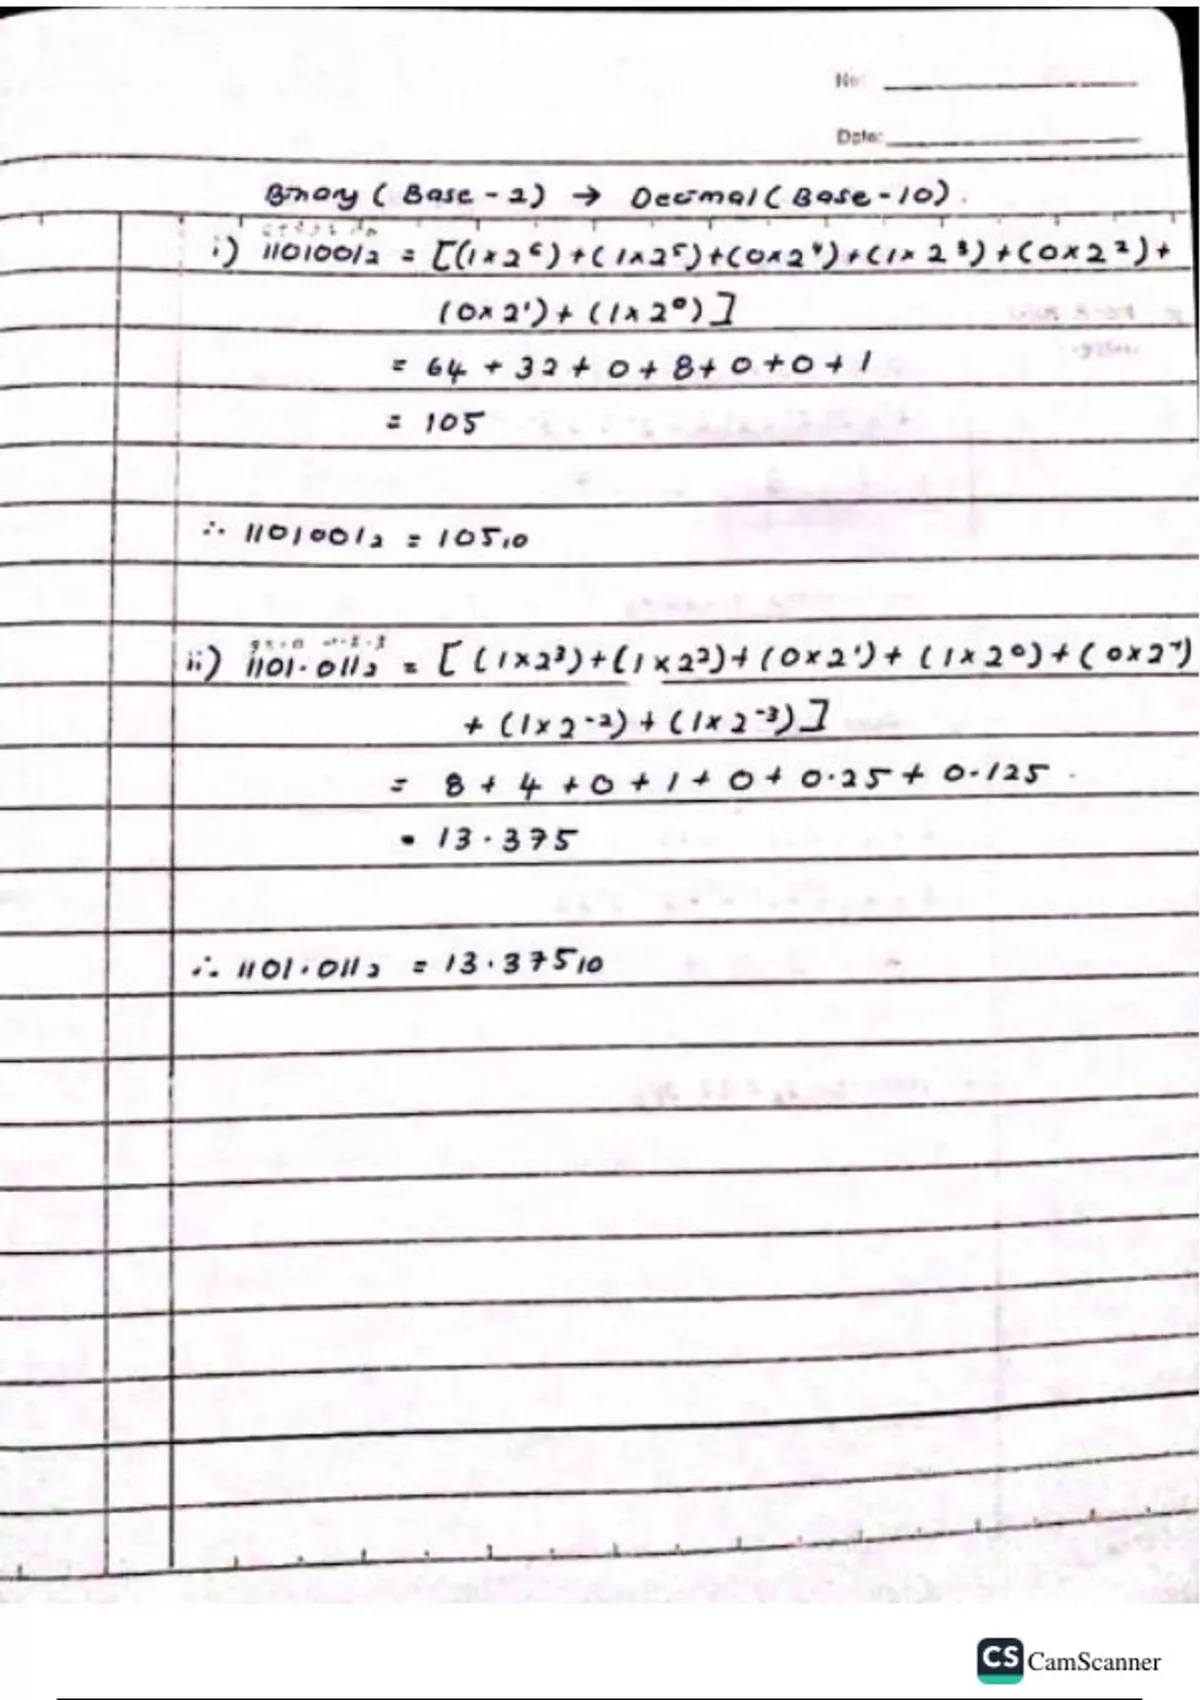 No:
Date:
Binary ( Base - 2) → Decimal ( Base - 10).
6 5 4 3 2 1 0
i) 1101001₂ = [(1 × 2⁶) + (1 × 2⁵) + (0 × 2⁴) + (1 × 2³) + (0 × 2²) +
(0 × 2¹) + (1 × 2⁰)]
= 64 + 32 + 0 + 8 + 0 + 0 + 1
= 105
∴ 1101001₂ = 105₁₀
ii) 1101.011₂ = [ (1×2³) + (1×2²) + (0×2¹) + (1×2⁰) + (0×2⁻¹)
+ (1×2⁻²) + (1×2⁻³)]
= 8 + 4 + 0 + 1 + 0 + 0.25 + 0.125
= 13.375
∴ 1101.011₂ = 13.375₁₀
CS CamScanner